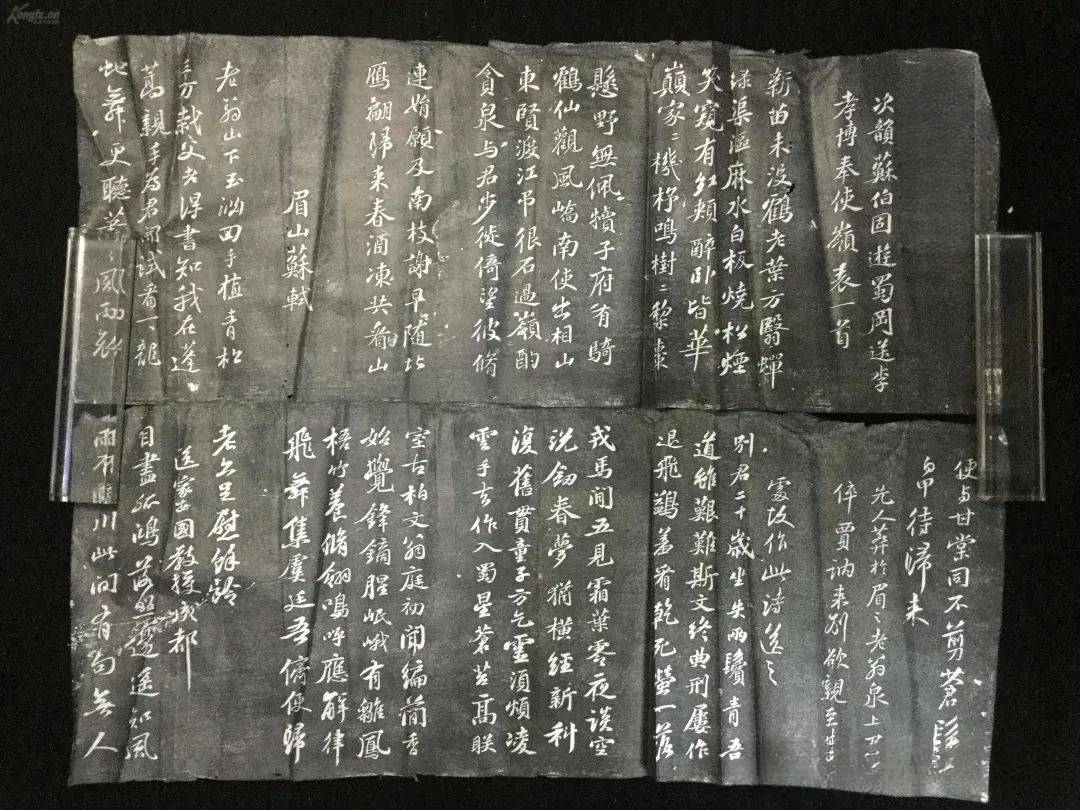 Kongfz.cn
次韻蘇伯固遊蜀岡送李
孝博奉使嶺表一首
新苗未没鶴老葉方翳蟬
緑渠漚麻水白板燒松煙
笑窺有紅頰醉卧皆華
巔家二機杼鳴樹二黎棗
懸野無佩犢子府有騎
鶴仙觀風嶠南使出相山
東賢渡江弔很石過嶺酌
貪泉与君步徙倚望彼脩
連娟願及南枝謝早随北
鴈翩歸来春酒凍共看山
眉山蘇軾
老翁山下玉淵回手植青松
三万栽父老得書知我在蓬
蒿親手為君開試看一一龍
蛇舞更聽蕭風雨哀
便与甘棠同不剪蒼髯
待歸来
先人葬於眉之老翁泉上
倅賈訥来別欲親至其
處故作此詩送之
別君二十歲坐失兩鬢青吾
道雖艱難斯文終典刑屢作
退飛鷁羞看乾死螢一落
戎馬間五見霜葉零夜談空
説劒春夢猶橫經新科
復舊貫童子方乞靈須煩凌
雲手去作入蜀星蒼苔高朕
室古柏文翁庭初聞編簡香
始覺鋒鏑腥岷峨有雛鳳
梧竹養脩翎鳴呼應嶰律
飛舞集虞廷吾儕便歸
老亦足慰餘齡
送家安國教授成都
目盡孤鴻落照邊遥知風
雨不同川此間有句無人